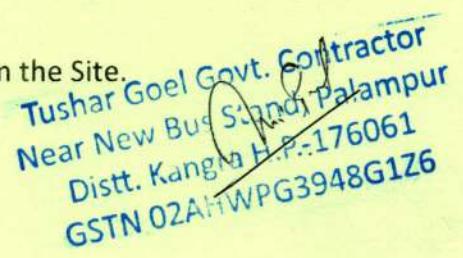 n the Site.
Tushar Goel Govt. Contractor
Near New Bus Stand, Palampur
Distt. Kangra H.P.-176061
GSTN 02AHWPG3948G1Z6